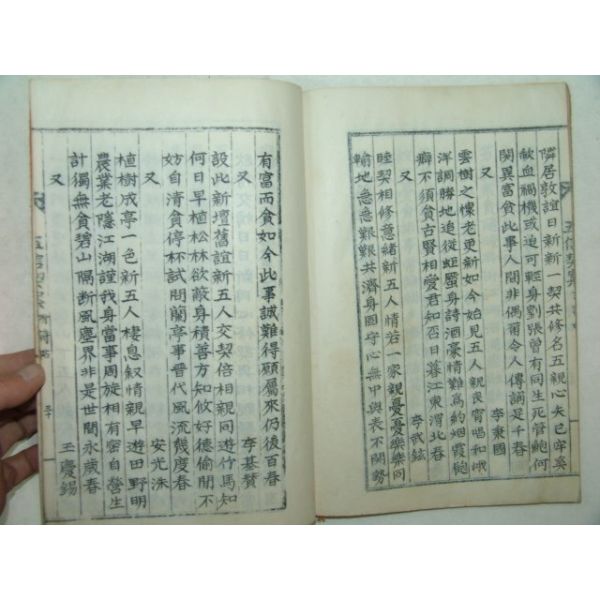 隣居敦誼日新新一契共修名五親心矢已牢奠
歃血禍機或迫可輕身割張曾有同生死管鮑何
関異富貪此事人間非偶爾令人傳誦是千春
又 李秉國
雲樹之樓老更新如今始見五人親良宵唱和峨
洋調勝地追從蛭蟨身詩酒豪情難為約烟霞
癖不須貧古賢相愛君知否日暮江東渭北春
又 李武鉉
睦契相修意緒新五人情若一家親憂憂樂樂同
輸地急急艱艱共濟身固守心無中與表不關勢
有富而貪如今此事誠難得願屬來仍後百春
又 李基贊
設此新壇舊誼新五人交契倍相親同遊竹馬知
何日早植松林欲蔽身積善方知攸好德偷閒不
妨自清貪停杯試問蘭亭事晉代風流幾度春
又 安光洙
植樹成亭一色新五人棲息叙情親早遊田野明
農業老隱江湖謹我身當事周旋相有密自營生
計獨無貪碧山隔断風塵界非是世間永歲春
又 王慶錫